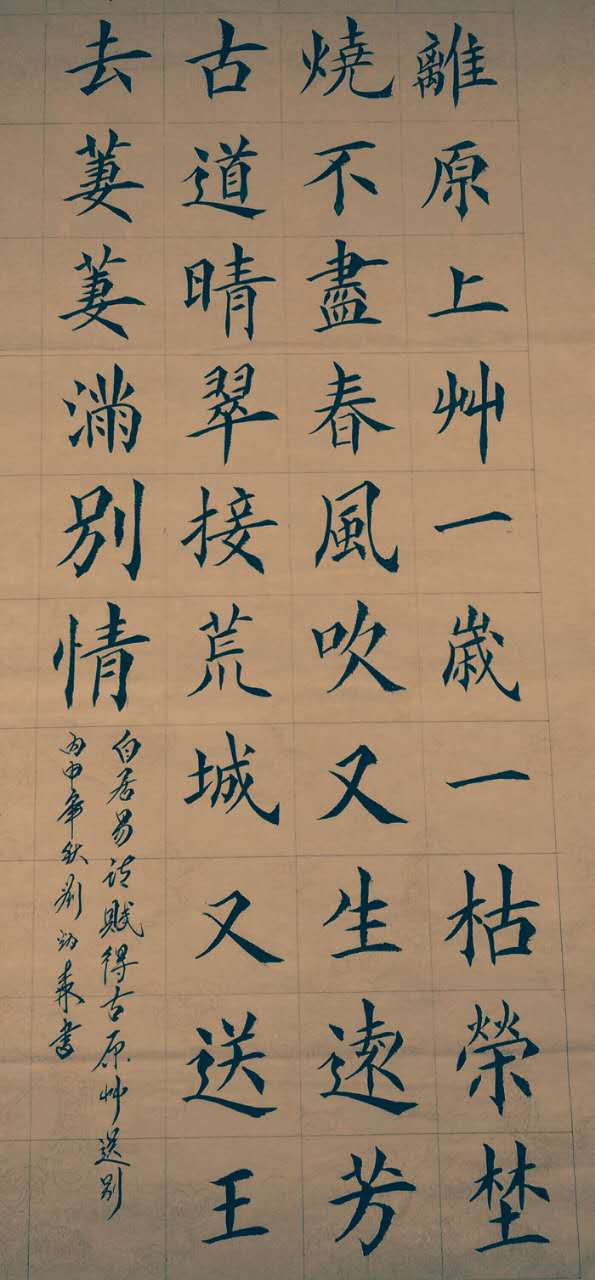 離原上艸一嵗一枯榮埜
燒不盡春風吹又生遠芳
古道晴翠接荒城又送王
去萋萋滿別情
白居易詩賦得古原艸送別
丙申年秋劉書